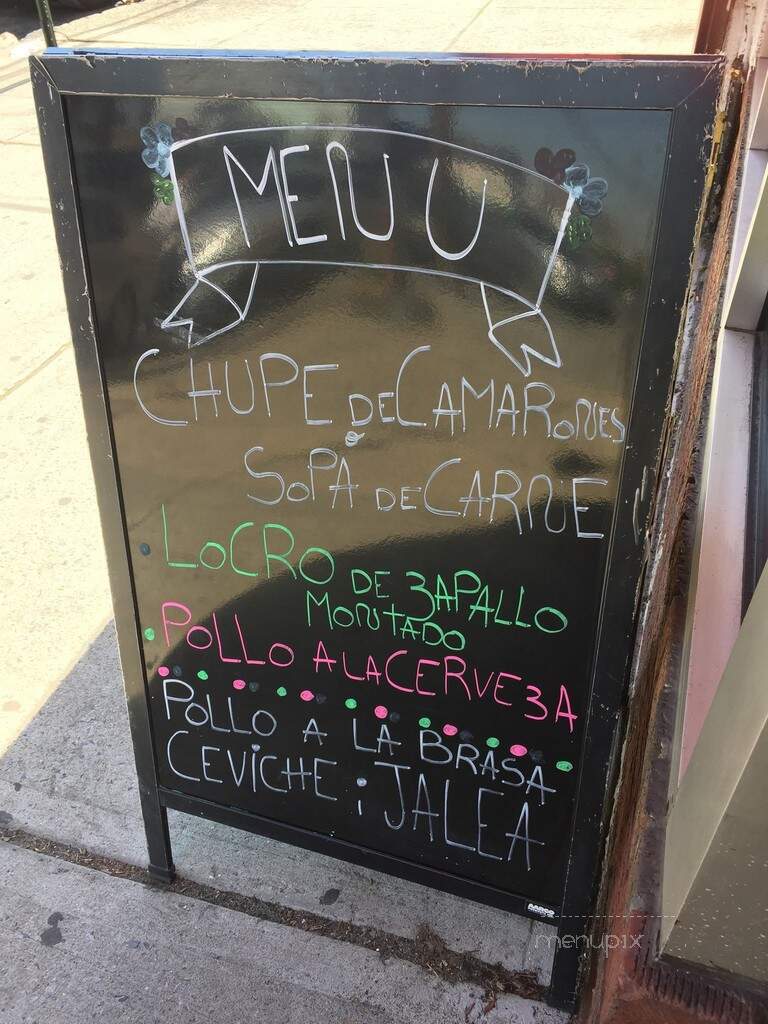 MENU
CHUPE DE CAMARONES
SOPA DE CARNE
LOCRO DE ZAPALLO
MONTADO
POLLO A LA CERVEZA
POLLO A LA BRASA
CEVICHE ¡ JALEA
AARCO
menupix